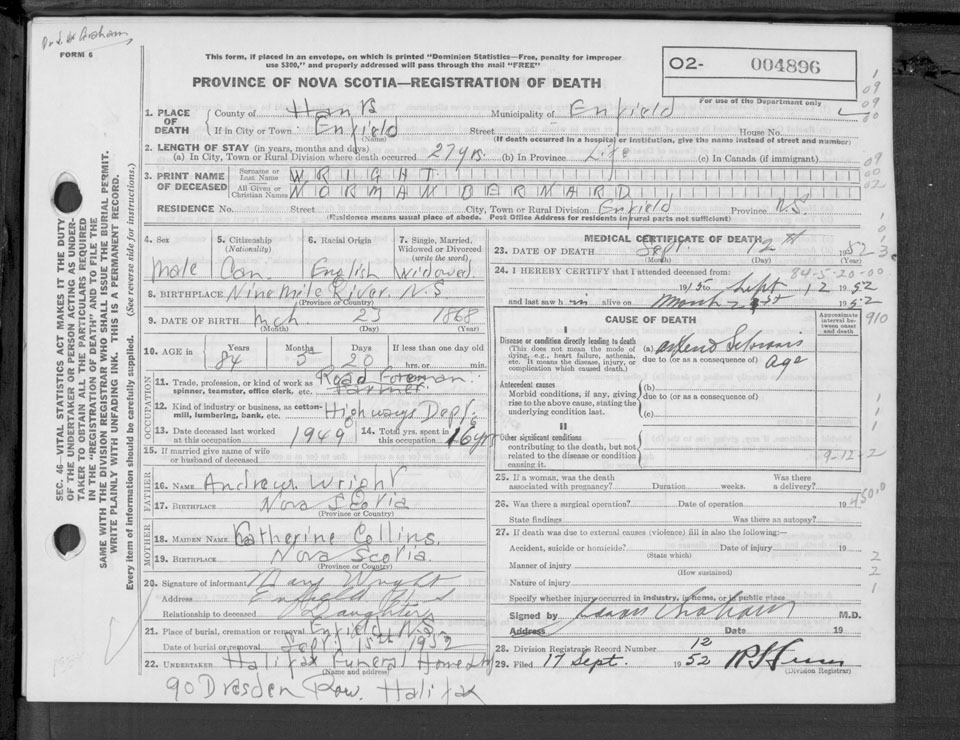 FORM 6
This form, if placed in an envelope, on which is printed "Dominion Statistics—Free, penalty for improper
use $300," and properly addressed will pass through the mail "FREE"
PROVINCE OF NOVA SCOTIA—REGISTRATION OF DEATH
O2- 004896
For use of the Department only
SEC. 46—VITAL STATISTICS ACT MAKES IT THE DUTY
OF THE UNDERTAKER OR PERSON ACTING AS UNDER-
TAKER TO OBTAIN ALL THE PARTICULARS REQUIRED
IN THE "REGISTRATION OF DEATH" AND TO FILE THE
SAME WITH THE DIVISION REGISTRAR WHO SHALL ISSUE THE BURIAL PERMIT.
WRITE PLAINLY WITH UNFADING INK. THIS IS A PERMANENT RECORD.
Every item of information should be carefully supplied. (See reverse side for instructions.)
1. PLACE OF DEATH County of Hants Municipality of Enfield
If in City or Town Enfield Street House No.
(Name) (If death occurred in a hospital or institution, give the name instead of street and number)
2. LENGTH OF STAY (in years, months and days)
(a) In City, Town or Rural Division where death occurred 27 yrs. (b) In Province Life (c) In Canada (if immigrant)
3. PRINT NAME OF DECEASED Surname or Last Name WRIGHT
All Given or Christian Names NORMAN BERNARD
RESIDENCE No. Street City, Town or Rural Division Enfield Province N.S.
(Residence means usual place of abode. Post Office Address for residents in rural parts not sufficient)
4. Sex 5. Citizenship (Nationality) 6. Racial Origin 7. Single, Married, Widowed or Divorced (write the word)
Male Can. English Widowed
8. BIRTHPLACE Nine Mile River. N.S
(Province or Country)
9. DATE OF BIRTH Mch 23 1868
(Month) (Day) (Year)
10. AGE in Years Months Days If less than one day old
84 5 20 hrs. or min.
OCCUPATION
11. Trade, profession, or kind of work as spinner, teamster, office clerk, etc. Road Foreman. Farmer
12. Kind of industry or business, as cotton-mill, lumbering, bank, etc. Highways Dept.
13. Date deceased last worked at this occupation 1949 14. Total yrs. spent in this occupation 16 yrs
15. If married give name of wife or husband of deceased
FATHER
16. NAME Andrew Wright
17. BIRTHPLACE Nova Scotia
(Province or Country)
MOTHER
18. MAIDEN NAME Katherine Collins
19. BIRTHPLACE Nova Scotia.
(Province or Country)
20. Signature of informant Mary Wright
Address Enfield
Relationship to deceased Daughter
21. Place of burial, cremation or removal Enfield N.S
Date of burial or removal Sept 15th 1952
22. UNDERTAKER Halifax Funeral Home
(NAME AND ADDRESS)
90 Dresden Row. Halifax
MEDICAL CERTIFICATE OF DEATH
23. DATE OF DEATH Sept. 12th 1952
(Month) (Day) (Year)
84-5-20-00
24. I HEREBY CERTIFY that I attended deceased from:
19 to Sept 12 1952
and last saw h im alive on 1952
CAUSE OF DEATH
Approximate interval between onset and death
I
Disease or condition directly leading to death (a)
(This does not mean the mode of dying, e.g., heart failure, asthenia, etc. It means the disease, injury, or complication which caused death.)
due to (or as a consequence of) age
Antecedent causes (b)
Morbid conditions, if any, giving rise to the above cause, stating the underlying condition last.
due to (or as a consequence of)
(c)
II
Other significant conditions contributing to the death, but not related to the disease or condition causing it.
9-12-2
25. If a woman, was the death associated with pregnancy? Duration weeks. Was there a delivery?
26. Was there a surgical operation? Date of operation 19
State findings Was there an autopsy?
27. If death was due to external causes (violence) fill in also the following:—
Accident, suicide or homicide? Date of injury 19
(State which)
Manner of injury
(How sustained)
Nature of injury
Specify whether injury occurred in industry, in home, or in public place
Signed by M.D.
Address Date 19
28. Division Registrar's Record Number 12
29. Filed 17 Sept. 1952
(Division Registrar)